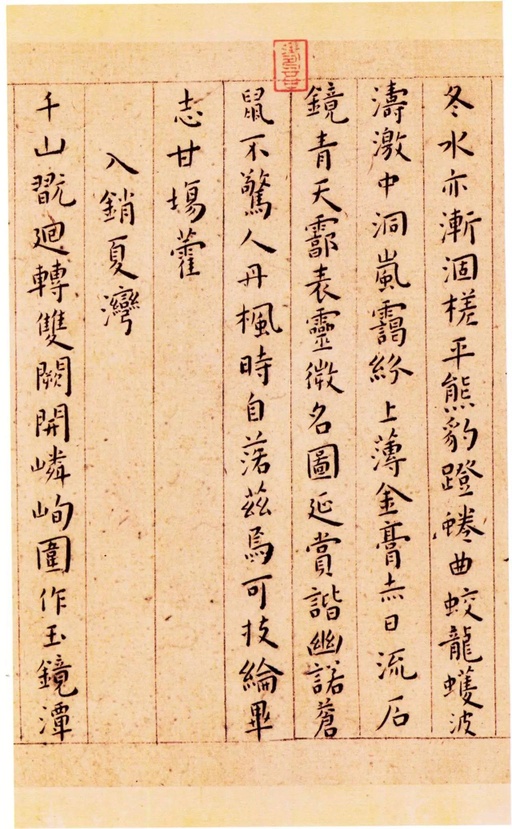 冬水亦漸涸槎平熊豹蹬蜷曲蛟龍蠖波
濤激中洞嵐靄紛上薄金膏赤日流石
鏡青天霩表靈微名圖延賞諧幽諾蒼
鼠不驚人丹楓時自落茲焉可投綸畢
志甘場藿
入銷夏灣
千山翫廻轉雙闕開嶙峋圍作玉鏡潭